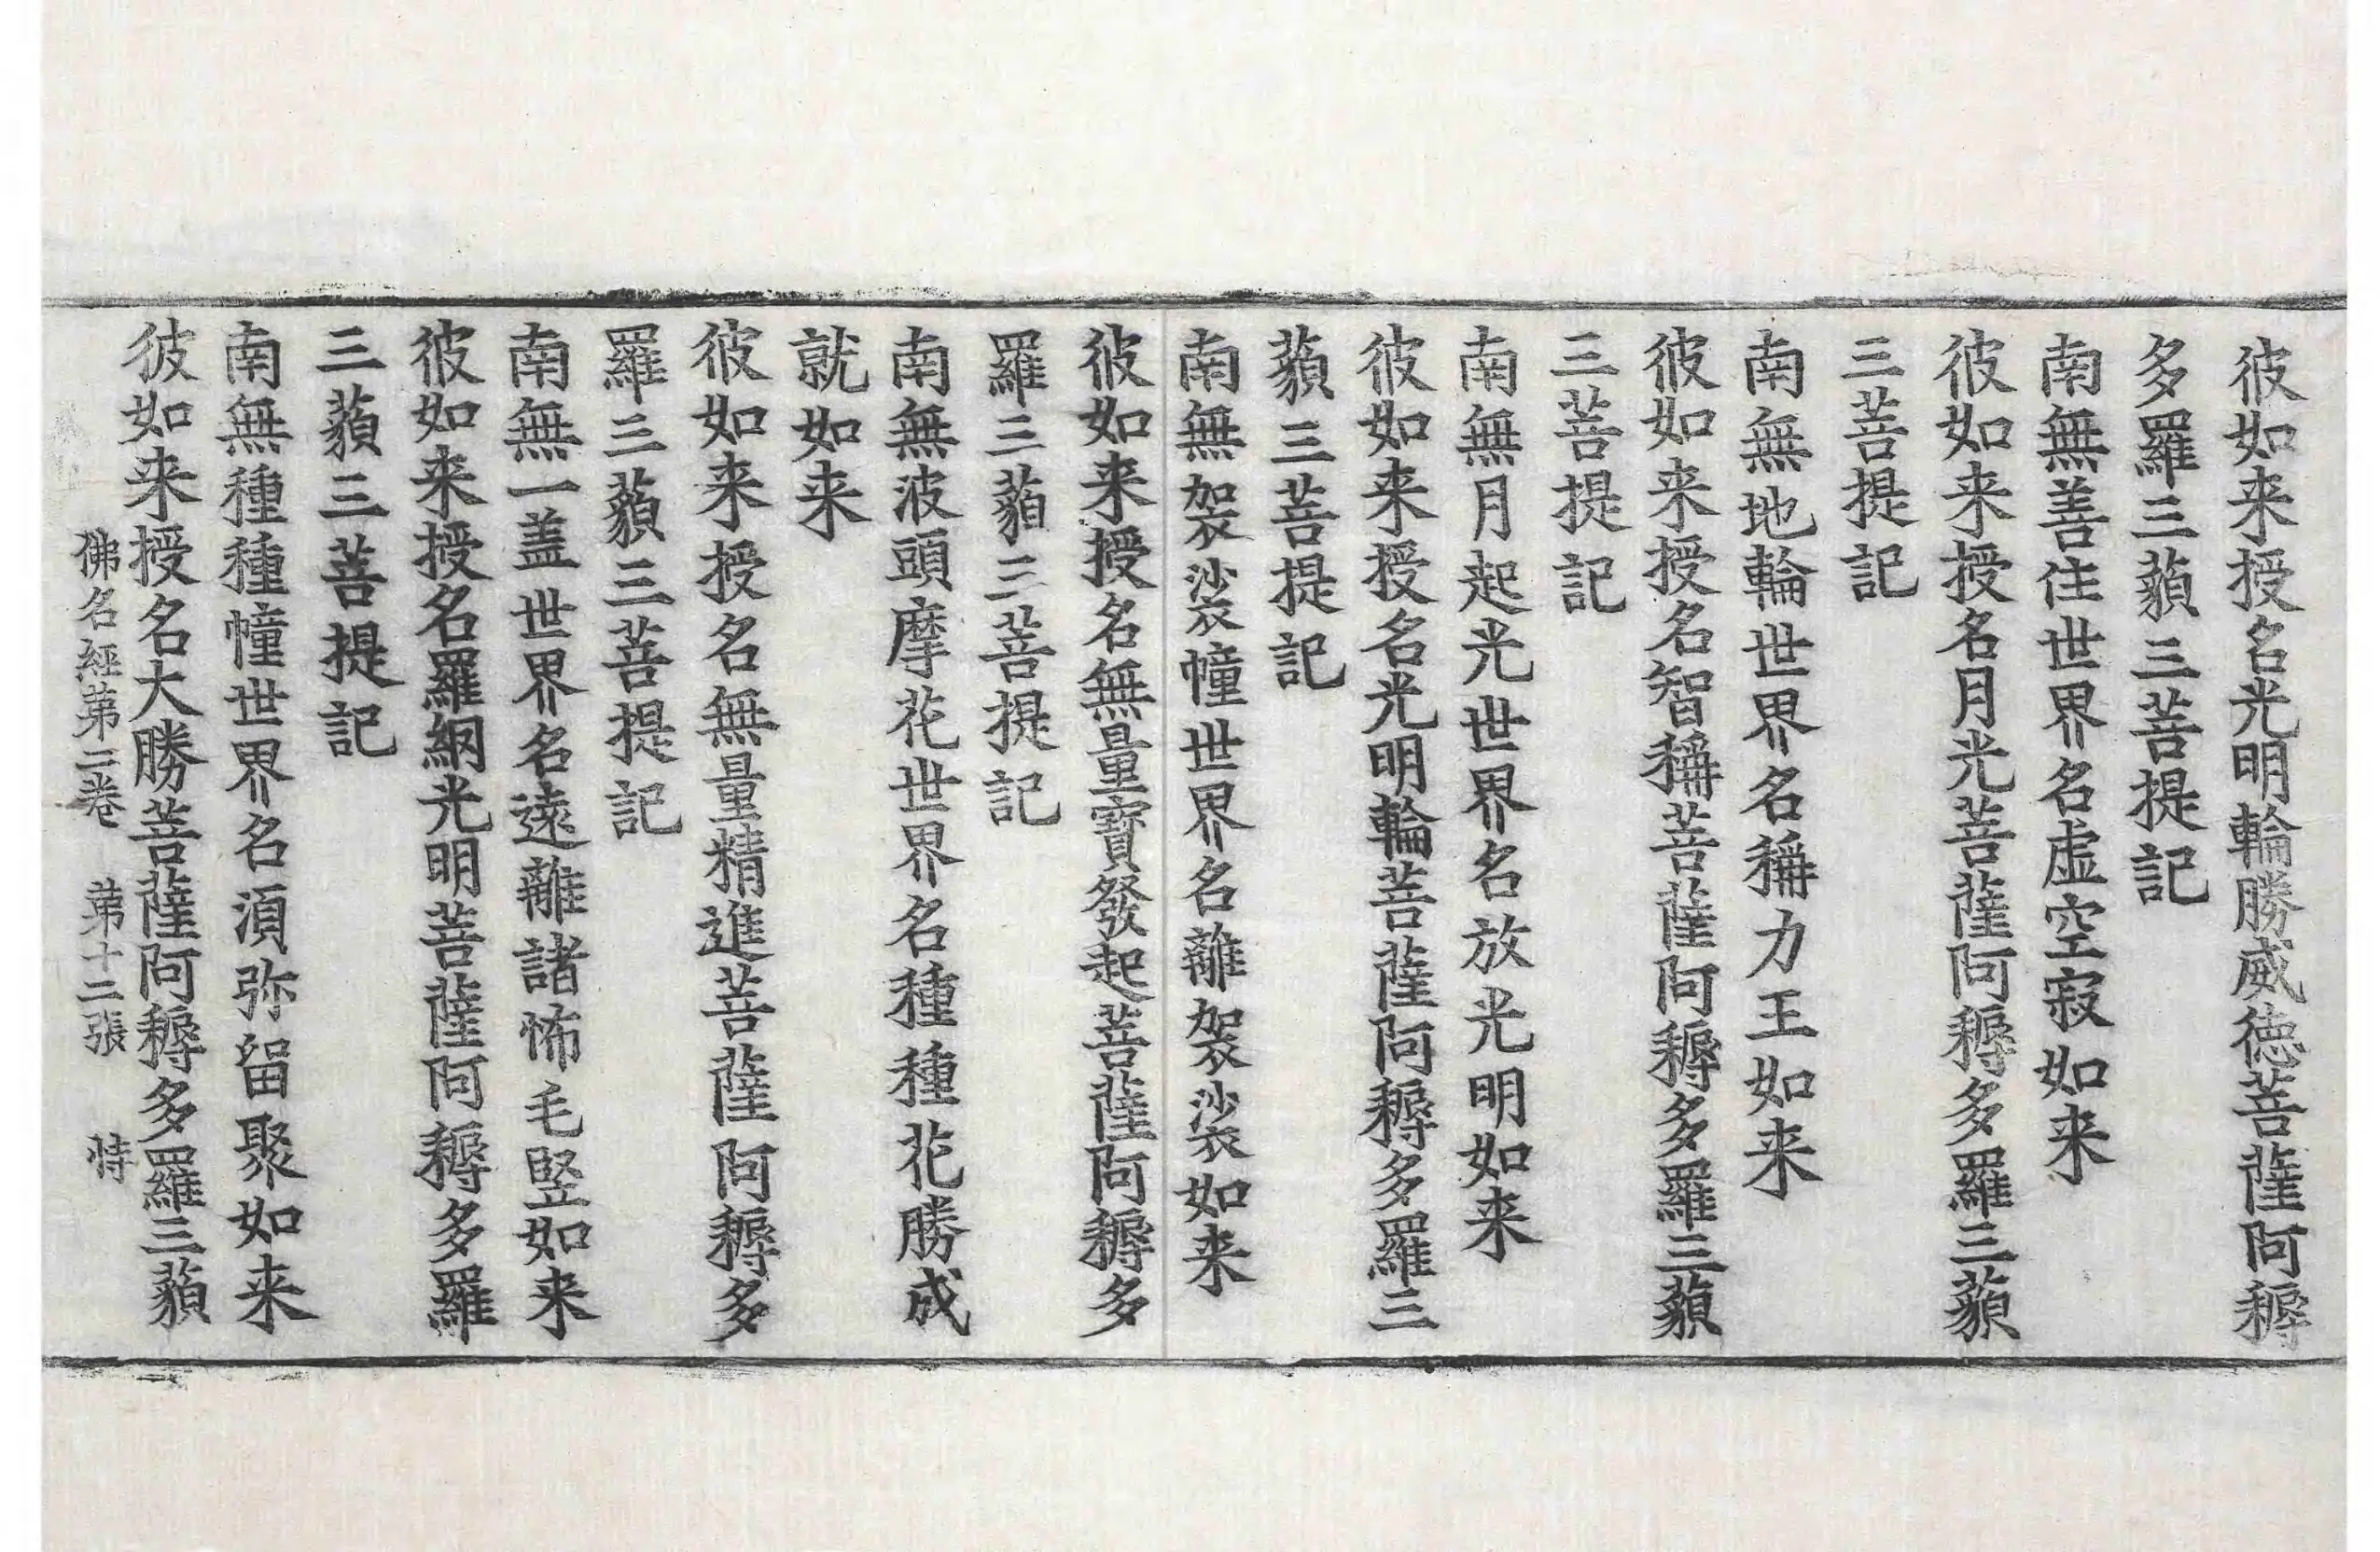 彼如来授名光明輪勝威德菩薩阿耨
多羅三藐三菩提記
南無善住世界名虛空寂如来
彼如来授名月光菩薩阿耨多羅三藐
三菩提記
南無地輪世界名稱力王如来
彼如来授名智稱菩薩阿耨多羅三藐
三菩提記
南無月起光世界名放光明如来
彼如来授名光明輪菩薩阿耨多羅三
藐三菩提記
南無袈裟幢世界名離袈裟如来
彼如来授名無量寶發起菩薩阿耨多
羅三藐三菩提記
南無波頭摩花世界名種種花勝成
就如来
彼如来授名無量精進菩薩阿耨多
羅三藐三菩提記
南無一盖世界名遠離諸怖毛竪如来
彼如来授名羅網光明菩薩阿耨多羅
三藐三菩提記
南無種種幢世界名湏弥留聚如来
彼如来授名大勝菩薩阿耨多羅三藐
佛名經第三卷 第十二張 特